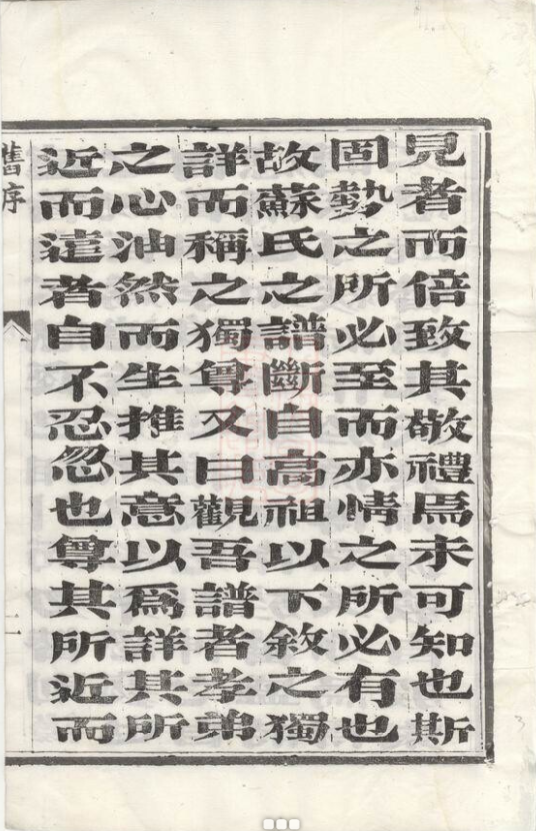 見者而倍致其敬禮焉未可知也斯
固勢之所必至而亦情之所必有也
故蘇氏之譜斷自高祖以下敘之獨
詳而稱之獨尊又曰觀吾譜者孝弟
之心油然而生推其意以爲詳其所
近而遠者自不忍忽也尊其所近而
舊序